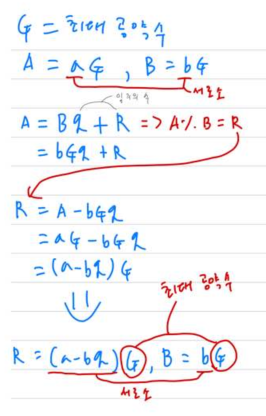 G = 최대 공약수
A = aG , B = bG
서로소
A = Bq + R => A % B = R
= bGq + R
R = A - bGq
= aG - bGq
= (a-bq) G
최대 공약수
R = (a-bq) G, B = bG
서로소